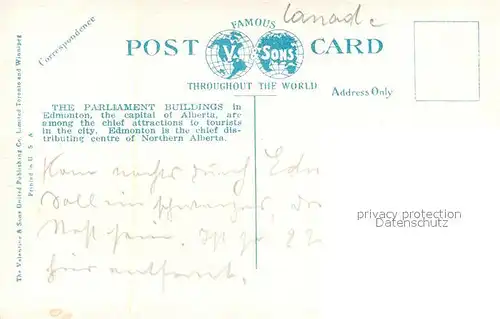 Canada
FAMOUS
POST CARD
V. & SONS
THROUGHOUT THE WORLD
Correspondence
Address Only
THE PARLIAMENT BUILDINGS in
Edmonton, the capital of Alberta, are
among the chief attractions to tourists
in the city. Edmonton is the chief dis-
tributing centre of Northern Alberta.
The Valentine & Sons United Publishing Co. Limited Toronto and Winnipeg
Printed in U S A
Kam nachts durch Edm
Soll ein
sein. Ist ja
hier entfernt.
privacy protection
Datenschutz